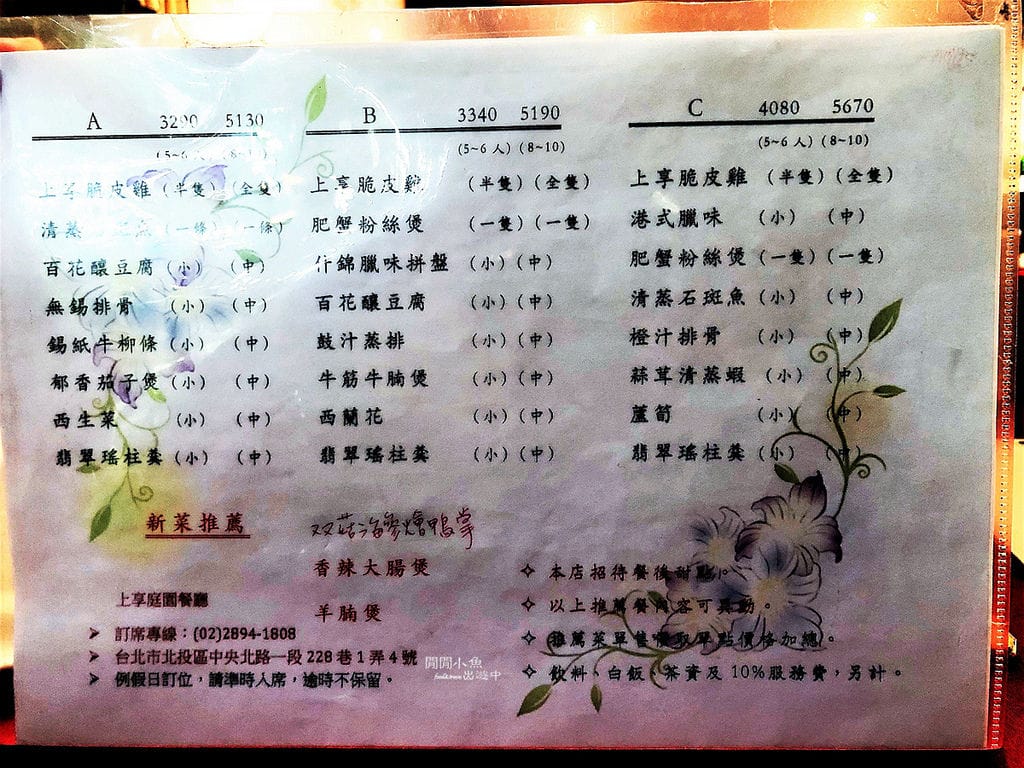 A 3290 5130
(5~6 人) (8~10)
上享脆皮雞 (半隻) (全隻)
清蒸 (一條) (一條)
百花釀豆腐 (小) (中)
無錫排骨 (小) (中)
錫紙牛柳條 (小) (中)
郁香茄子煲 (小) (中)
西生菜 (小) (中)
翡翠瑤柱羹 (小) (中)
B 3340 5190
(5~6 人) (8~10)
上享脆皮雞 (半隻) (全隻)
肥蟹粉絲煲 (一隻) (一隻)
什錦臘味拼盤 (小) (中)
百花釀豆腐 (小) (中)
鼓汁蒸排 (小) (中)
牛筋牛腩煲 (小) (中)
西蘭花 (小) (中)
翡翠瑤柱羹 (小) (中)
C 4080 5670
(5~6 人) (8~10)
上享脆皮雞 (半隻) (全隻)
港式臘味 (小) (中)
肥蟹粉絲煲 (一隻) (一隻)
清蒸石斑魚 (小) (中)
橙汁排骨 (小) (中)
蒜茸清蒸蝦 (小) (中)
蘆筍 (小) (中)
翡翠瑤柱羹 (小) (中)
新菜推薦
双菇海參燴鴨掌
香辣大腸煲
羊腩煲
上享庭園餐廳
➤ 訂席專線：(02)2894-1808
➤ 台北市北投區中央北路一段 228 巷 1 弄 4 號
➤ 例假日訂位，請準時入席，逾時不保留。
✧ 本店招待餐後甜點。
✧ 以上推薦餐內容可異動。
✧ 推薦菜單售價取單點價格加總。
✧ 飲料、白飯、茶資及 10%服務費，另計。
閒閒小魚
出遊中